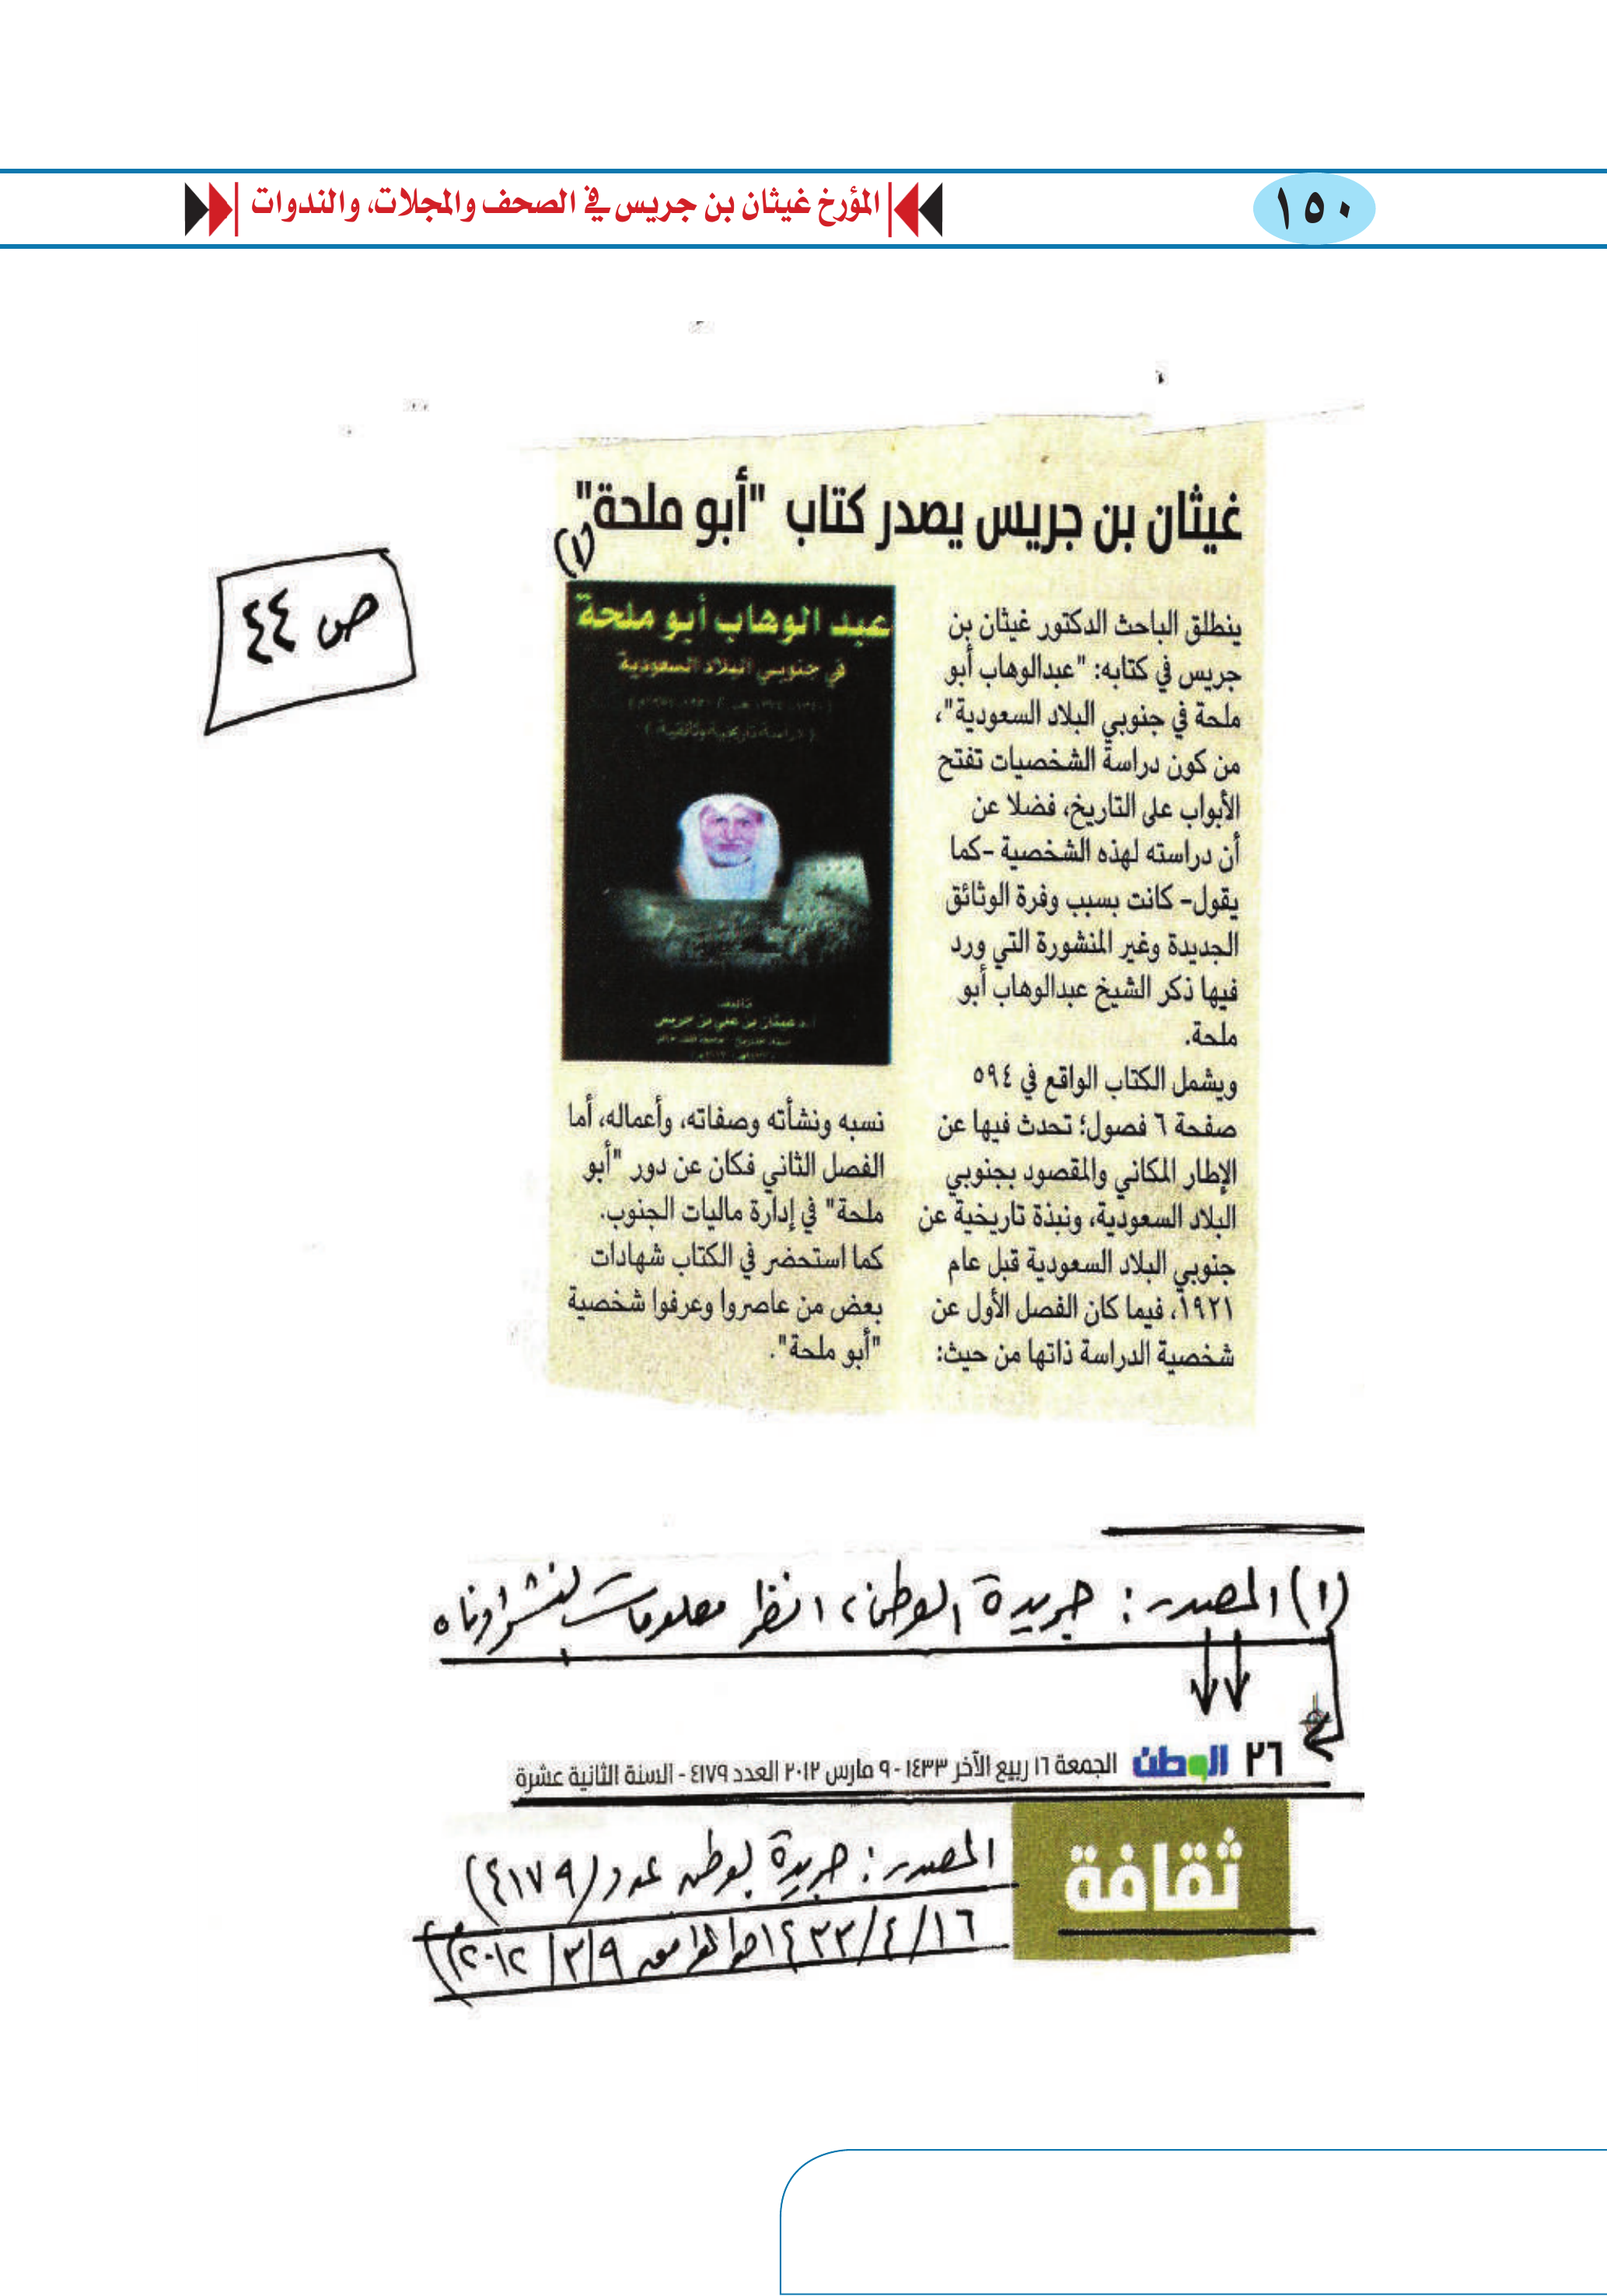 ١٥٠
المؤرخ غيثان بن جريس في الصحف والمجلات، والندوات
غيثان بن جريس يصدر كتاب "أبو ملحة"
(١)
ص ٤٤
ينطلق الباحث الدكتور غيثان بن
جريس في كتابه: "عبدالوهاب أبو
ملحة في جنوبي البلاد السعودية"،
من كون دراسة الشخصيات تفتح
الأبواب على التاريخ، فضلا عن
أن دراسته لهذه الشخصية -كما
يقول- كانت بسبب وفرة الوثائق
الجديدة وغير المنشورة التي ورد
فيها ذكر الشيخ عبدالوهاب أبو
ملحة.
ويشمل الكتاب الواقع في ٥٩٤
صفحة ٦ فصول؛ تحدث فيها عن
الإطار المكاني والمقصود بجنوبي
البلاد السعودية، ونبذة تاريخية عن
جنوبي البلاد السعودية قبل عام
١٩٢١، فيما كان الفصل الأول عن
شخصية الدراسة ذاتها من حيث:
عبد الوهاب أبو ملحة
في جنوبي البلاد السعودية
(دراسة تاريخية وثائقية)
تأليف
أ.د غيثان بن علي بن جريس
نسبه ونشأته وصفاته، وأعماله، أما
الفصل الثاني فكان عن دور "أبو
ملحة" في إدارة ماليات الجنوب.
كما استحضر في الكتاب شهادات
بعض من عاصروا وعرفوا شخصية
"أبو ملحة".
(١) المصدر: جريدة الوطن، انظر معلومات النشر أدناه
٢٦ الوطن الجمعة ١٦ ربيع الآخر ١٤٣٣ - ٩ مارس ٢٠١٢ العدد ٤١٧٩ - السنة الثانية عشرة
ثقافة
المصدر: جريدة الوطن عدد (٤١٧٩)
١٦/٤/١٤٣٣هـ الموافق ٩/٣/٢٠١٢م)